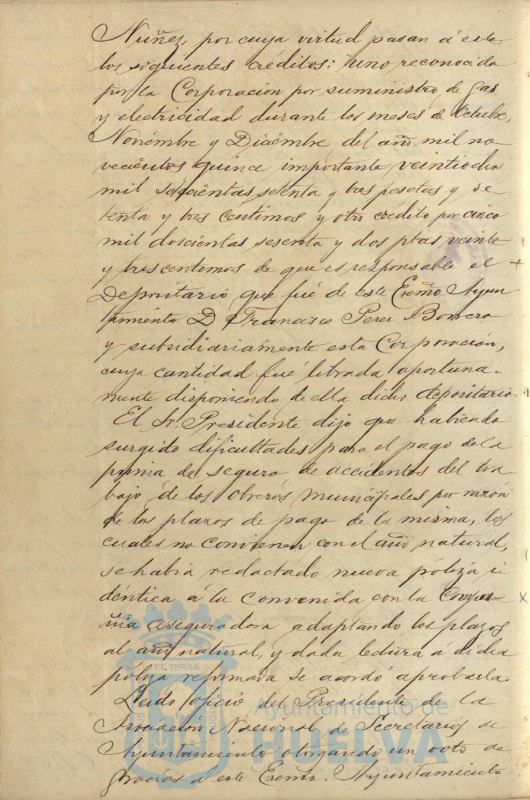 Nuñez, por cuya virtud pasan á este
los siguientes créditos: uno reconocido
por la Corporación por suministro de gas
y electricidad durante los meses de Octubre,
Noviembre y Diciembre del año mil no
vecientos quince importante veintiocho
mil seiscientas sesenta y tres pesetas y se
tenta y tres centimos y otro credito por cinco
mil doscientas sesenta y dos ptas veinte
y tres centimos de que es responsable el +
Depositario que fué de este Exmo Ayun
tamiento D Francisco Perez Borrero
y subsidiariamente esta Corporación,
cuya cantidad fué librada oportuna-
mente disponiendo de ella dicho depositario
El Sr. Presidente dijo que habiendo
surgido dificultades para el pago de la
prima del seguro de accidentes del tra
bajo de los obreros municipales por razón
de los plazos de pago de la misma, los
cuales no convienen con el año natural,
se habia redactado nueva póliza i
dentica á la convenida con la Compa- x
ñia aseguradora adaptando los plazos
al año natural, y dada lectura á dicha
póliza reformada se acordó aprobarla.
Leido oficio del Presidente de la
Asociación Nacional de Secretarios de
Ayuntamiento otorgando un voto de
gracias á este Exmo. Ayuntamiento
Ayuntamiento de
HUELVA